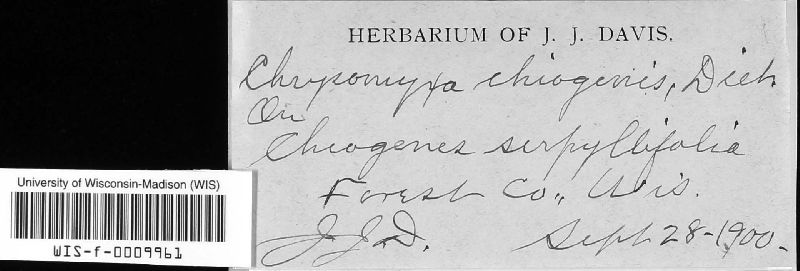 HERBARIUM OF J. J. DAVIS.
Chrysomyxa chiogenis, Diet.
On
Chiogenes serpyllifolia
Forest Co., Wis.
J.J.D. Sept 28-1900-
University of Wisconsin-Madison (WIS)
WIS-f-0009961